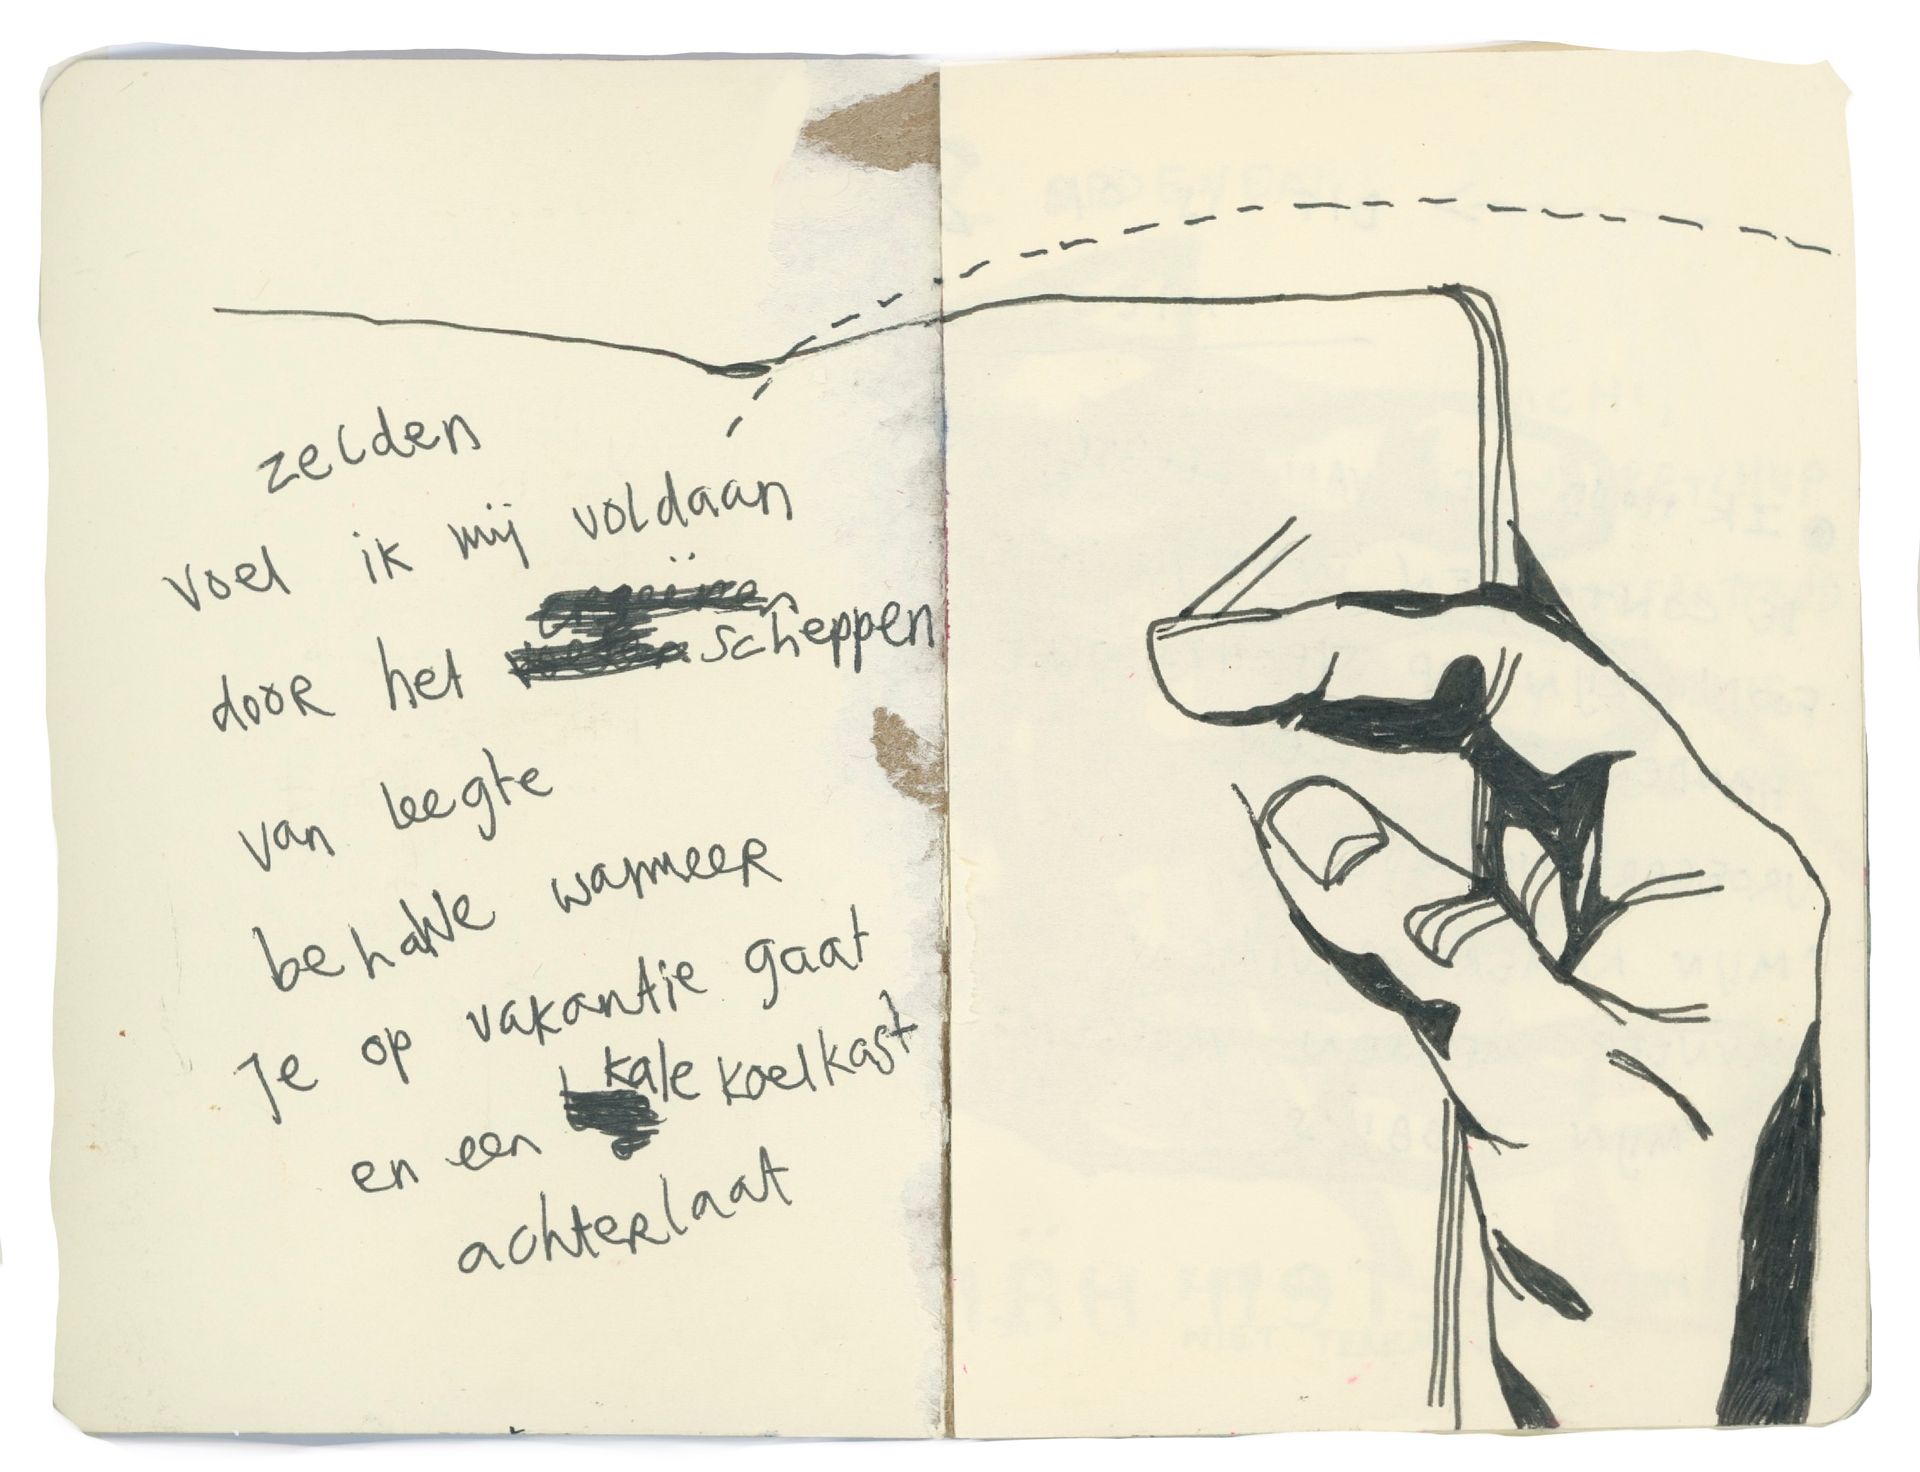 zelden
voel ik mij voldaan
door het scheppen
van leegte
behalve wanneer
je op vakantie gaat
en een kale koelkast
achterlaat